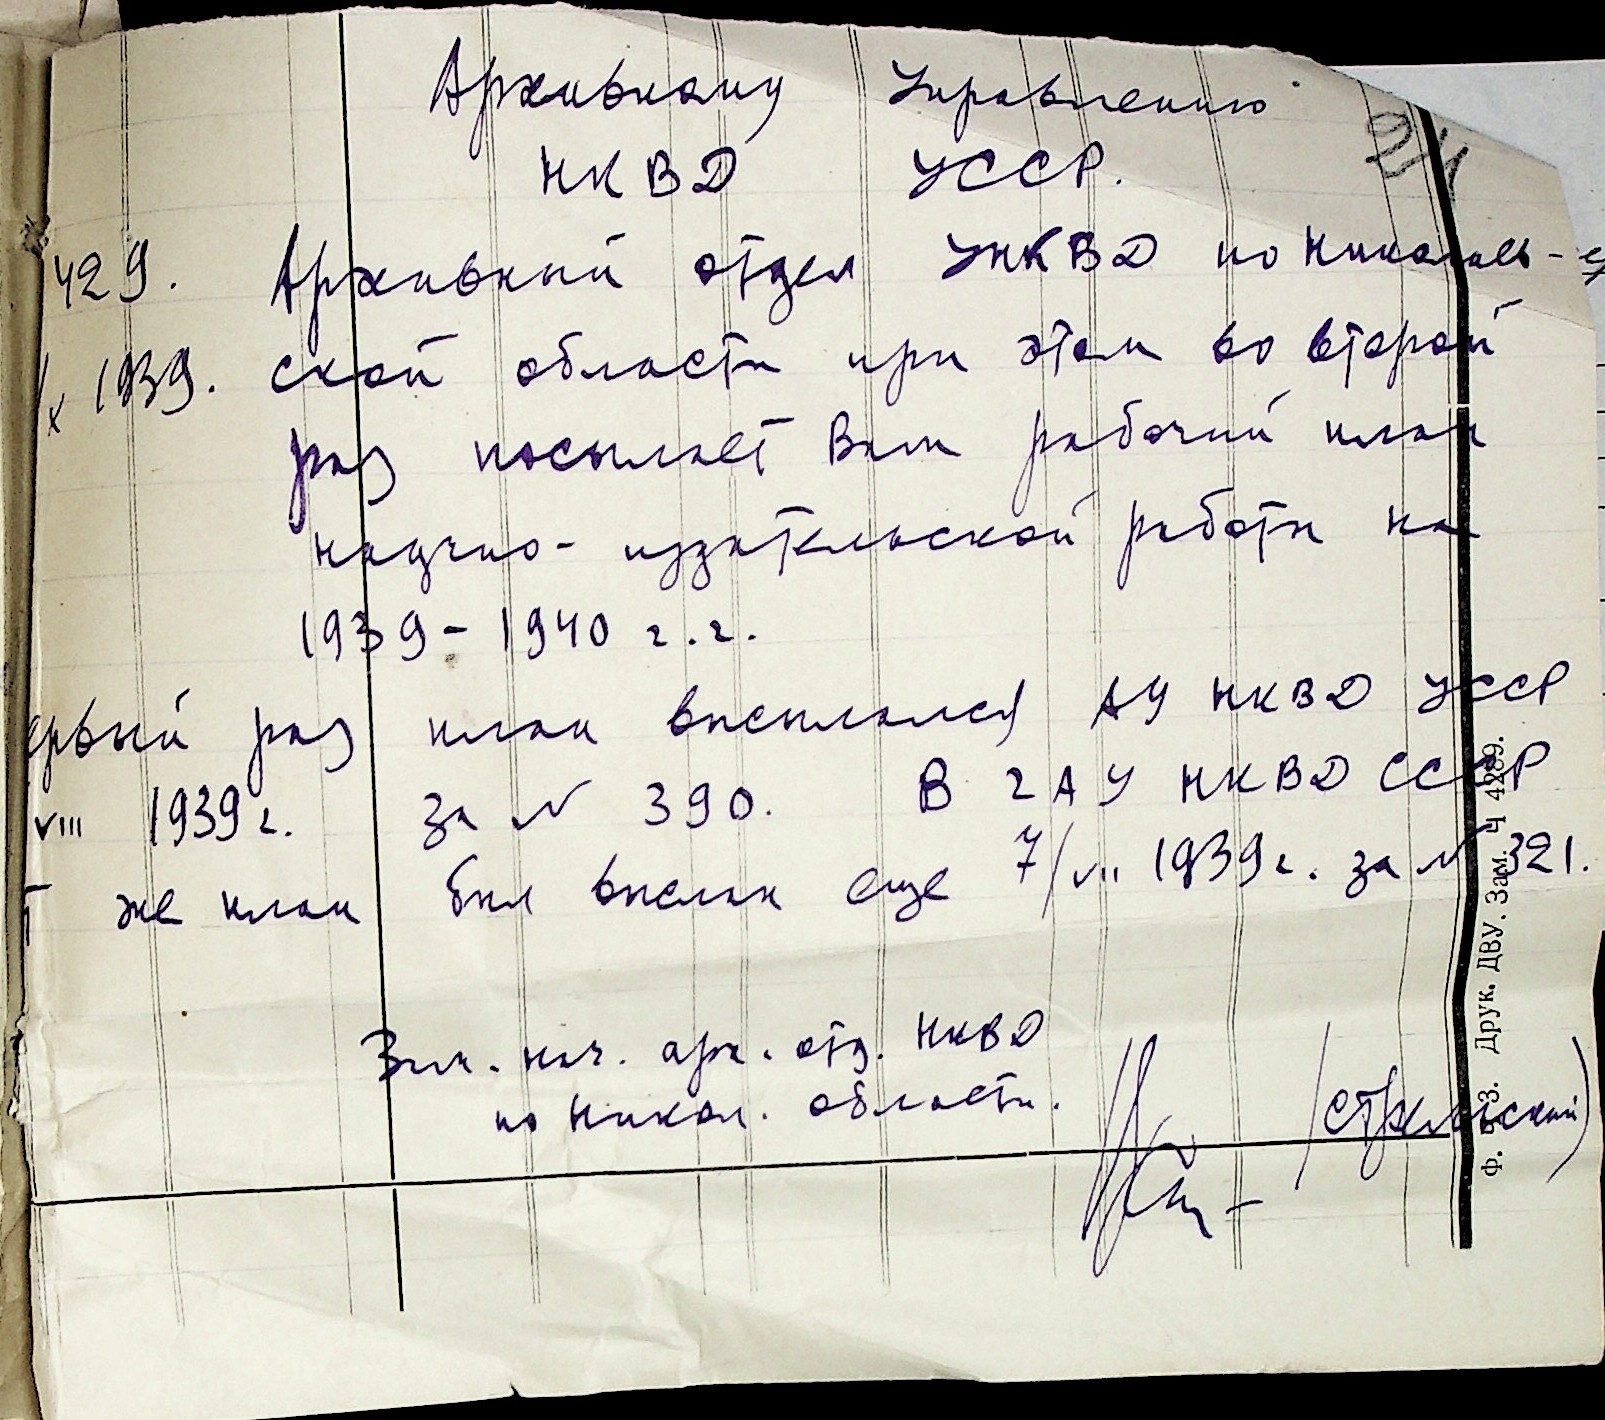 Архивному Управлению
НКВД УССР.
24
429. Архивный отдел УНКВД по Николаев-
х 1939. ской области при этом во второй
раз посылает Вам рабочий план
научно-издательской работы на
1939-1940 г.г.
ервый раз план высылался АУ НКВД УССР
VIII 1939 г. за № 390. В ГАУ НКВД СССР
т же план был выслан еще 7/VII 1939 г. за № 321.
Зам. нач. арх. отд. НКВД
по Никол. области.
(Стрельский)
Ф. ч. 3. Друк. ДВУ. Зам. Ч 4289.